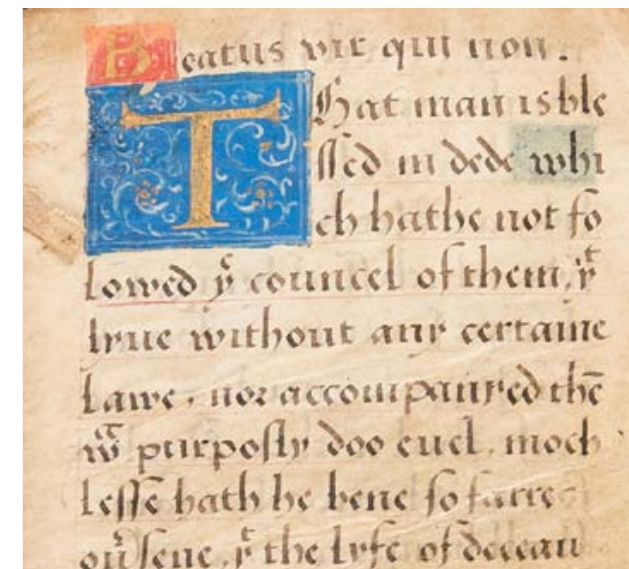 Beatus vir qui non.
That man is ble
ssed in dede whi
ch hathe not fo
lowed yͤ councel of them, yͭ
lyue without any certaine
Lawe, nor accompanyed thē
wͨʰ purposly doo euel, moch
Lesse hath he bene so farre
ouʳsene, yͭ the lyfe of deceau